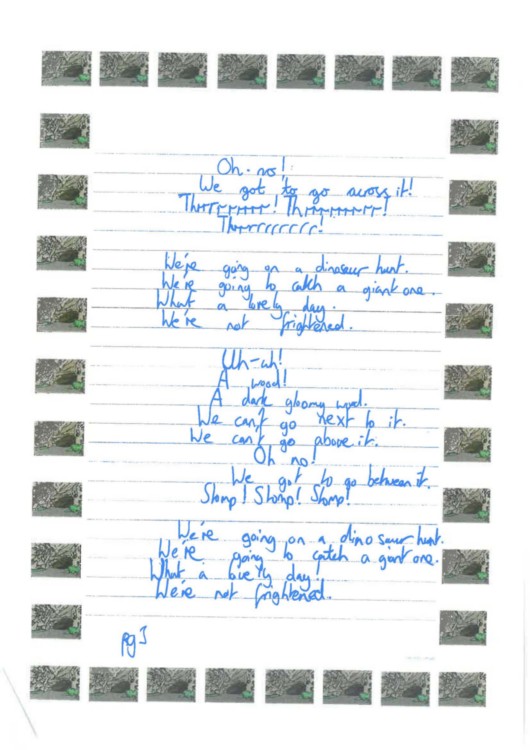 Oh no!
We got to go across it!
Thrrrrrrrr! Thrrrrrrrrr!
Thrrrrrrrrrr!
We're going on a dinosaur hunt.
We're going to catch a giant one.
What a lovely day.
We're not frightened.
Uh-uh!
A wood!
A dark gloomy wood.
We can't go next to it.
We can't go above it.
Oh no!
We got to go between it.
Stomp! Stomp! Stomp!
We're going on a dinosaur hunt.
We're going to catch a giant one.
What a lovely day.
We're not frightened.
pg 3